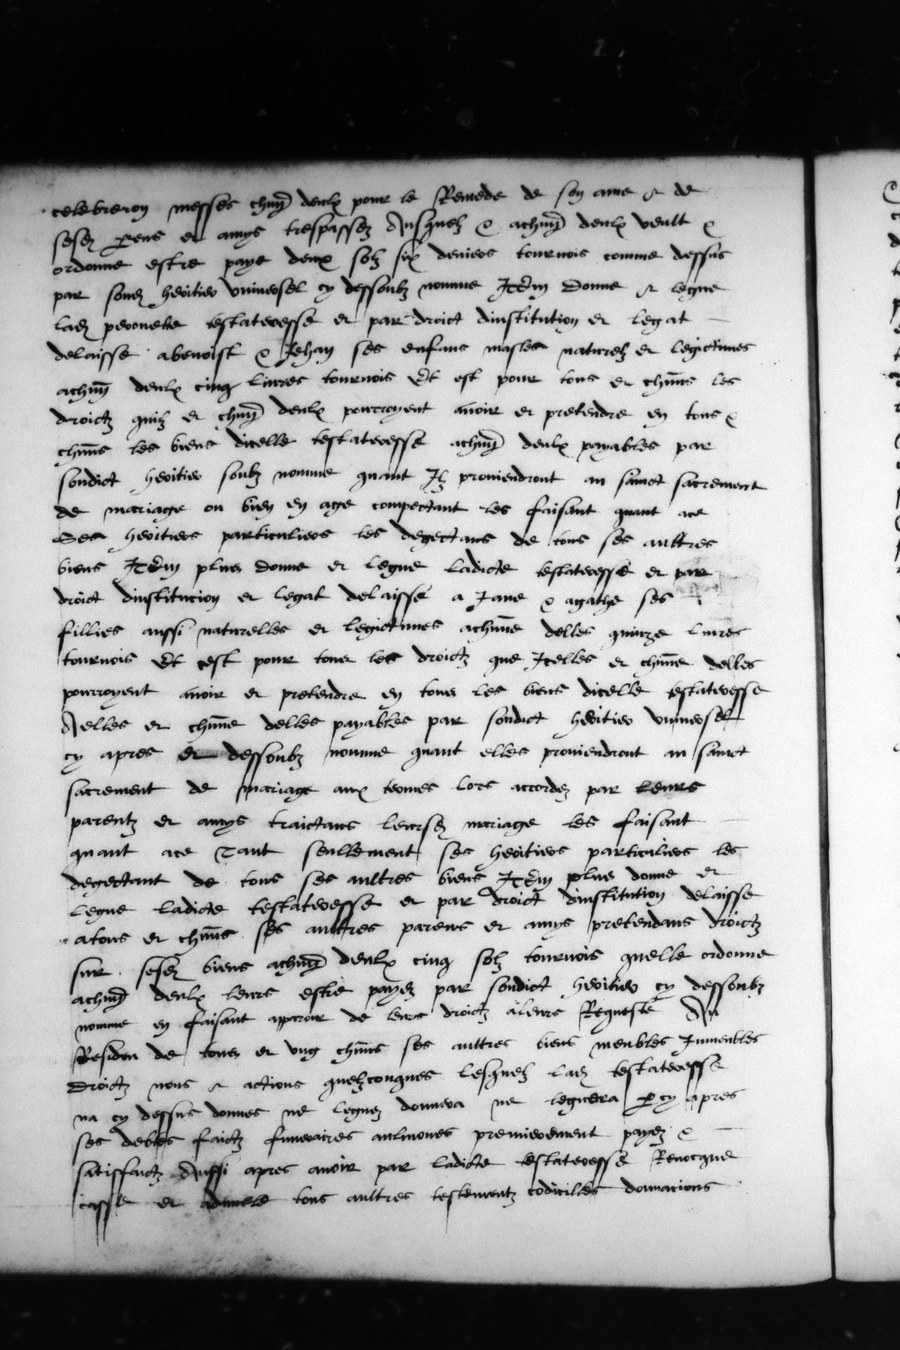 celebreron messes chun deulx pour le Remede de son ame & de
sesd parens et amys trespassez Ausquelz & achun deulx veult &
ordonne estre paye deux solz six deniers tournois comme dessus
par sond heritier universel cy dessoubz nomme Item donne & legue
lad peronete testateresse et par droict dinstitution et legat
delaisse a benoist & Jehan ses enfans masles naturelz et legictimes
achun deulx cinq livres tournois Et est pour tous et chuns les
droictz quilz et chun deulx pourroyent avoir et pretendre en tous &
chuns les biens dicelle testateresse achun deulx payables par
sondict heritier soubz nomme quant Ilz proviendront au sainct sacrement
de mariage ou bien en age compectant les faisant quant ace
Ses heritiers particuliers les degectans de tous ses aultres
biens Item plus donne et legue ladicte testateresse et par
droict dinstitucion et legat delaisse a Jane & agathe ses
fillies aussi naturelles et legictimes achune delles quinze livres
tournois Et cest pour tous les droictz que Icelles et chune delles
pourroyent avoir et pretendre en tous les biens dicelle testateresse
Aelles et chune delles payables par sondict heritier universel
cy apres et dessoubz nomme quant elles proviendront au sainct
sacrement de mariage aux termes lors accordez par leurs
parentz et amys traictans leursd mariage les faisant
quant ace Tant seullement ses heritiers particuliers les
degectant de tous ses aultres biens Item plus donne et
legue ladicte testateresse et par droict dinstitution delaisse
atous et chuns ses aultres parens et amys pretendans droictz
sur sesd biens achun deulx cinq solz tournois quelle ordonne
achun deulx leurs estre payez par sondict heritier cy dessoubz
nomme en faisant apparoir de leurs droictz aleurs Requeste Au
Residu de tous et ung chuns ses aultres biens meubles Inmeubles
droictz noms & actions quelzconques lesquelz lad testateresse
na cy dessus donnes ne leguez donnera ne leguera cy apres
ses debtes faictz funeraires aulmones premierement payez &
satisfaictz Aussi apres avoir par ladicte testateresse Revocque
casse et adnulle tous aultres testementz codicilles donnacions